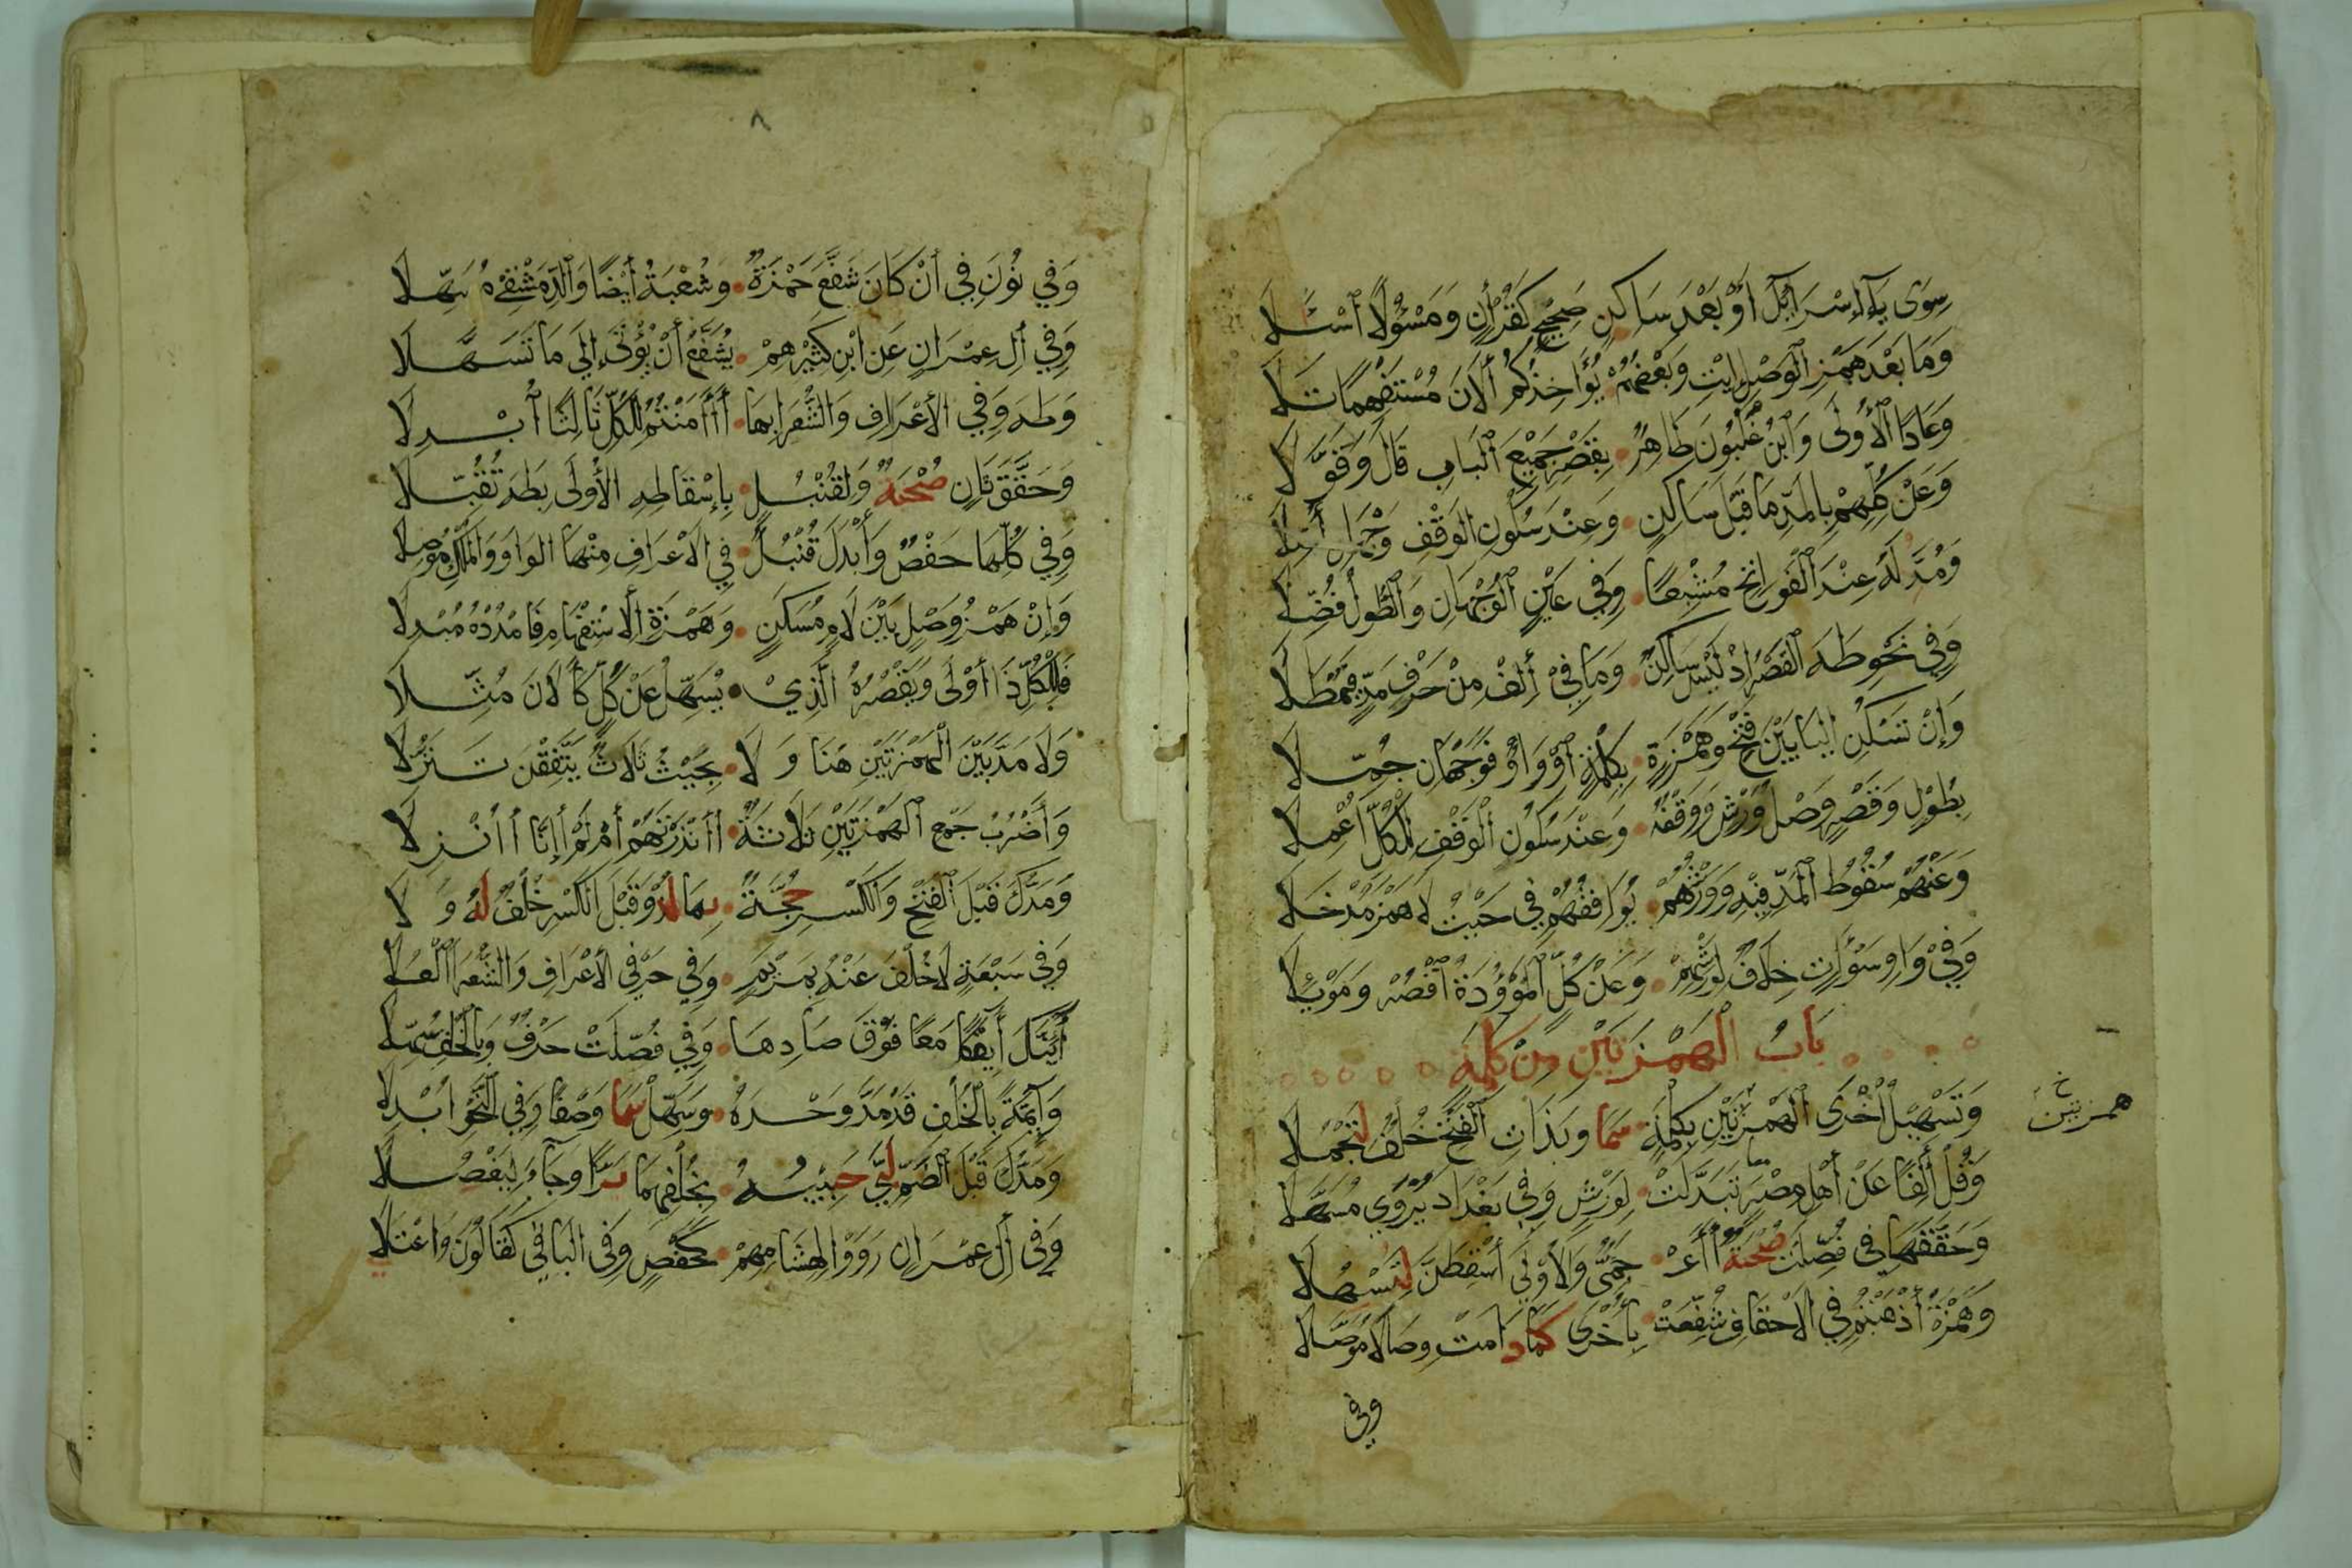 سِوَى يَاءِ إِسْرَائِيلَ أَوْ بَعْدَ سَاكِنٍ صَحِيحٍ كَقُرْآنٍ وَمَسْئُولًا اسْئَلَا
وَمَا بَعْدَ هَمْزِ الْوَصْلِ إِيتِ وَبَعْضُهُمْ يُؤَاخِذُكُمُ أَلَانَ مُسْتَفْهِمًا تَلَا
وَعَادًا الْأُولَى وَابْنُ غَلْبُونَ طَاهِرٌ بِقَصْرِ جَمِيعِ الْبَابِ قَالَ وَقَوَّلَا
وَعَنْ كُلِّهِمْ بِالْمَدِّ مَا قَبْلَ سَاكِنٍ وَعِنْدَ سُكُونِ الْوَقْفِ وَجْهَانِ أُصِّلَا
وَمُدَّ لَهُ عِنْدَ الْفَوَاتِحِ مُشْبِعًا وَفِي عَيْنٍ الْوَجْهَانِ وَالطُّولُ فُضِّلَا
وَفِي نَحْوِ طَهَ الْقَصْرُ إِذْ لَيْسَ سَاكِنٌ وَمَا فِي أَلِفْ مِنْ حَرْفِ مَدٍّ فَيُمْطَلَا
وَإِنْ تَسْكُنِ الْيَا بَيْنَ فَتْحٍ وَهَمْزَةٍ بِكِلْمَةٍ أَوْ وَاوٌ فَوَجْهَانِ جُمِّلَا
بِطُولٍ وَقَصْرٍ وَصْلُ وَرْشٍ وَوَقْفُهُ وَعِنْدَ سُكُونِ الْوَقْفِ لِلْكُلِّ أُعْمِلَا
وَعَنْهُمْ سُقُوطُ الْمَدِّ فِيهِ وَوَرْشُهُمْ يُوَافِقُهُمْ فِي حَيْثُ لَا هَمْزَ مُدْخَلَا
وَفِي وَاوِ سَوْآتٍ خِلَافٌ لِوَرْشِهِمْ وَعَنْ كُلٍّ الْمَوْؤُدَةُ اقْصُرْ وَمَوْئِلَا
بَابُ الْهَمْزَتَيْنِ مِنْ كَلِمَةٍ
وَتَسْهِيلُ أُخْرَى الْهَمْزَتَيْنِ بِكِلْمَةٍ سَمَا وَبِذَاتِ الْفَتْحِ خُلْفٌ لِتَجْمُلَا
خ
همزتين
وَقُلْ أَلِفًا عَنْ أَهْلِ مِصْرَ تَبَدَّلَتْ لِوَرْشٍ وَفِي بَغْدَادَ يُرْوَى مُسَهَّلَا
وَحَقَّقَهَا فِي فُصِّلَتْ صُحْبَةٌ أَأَعْـ جَمِيٌّ وَالْأُولَى أَسْقِطَنَّ لِتَسْهُلَا
وَهَمْزَةُ أَذْهَبْتُمْ فِي الْأَحْقَافِ شُفِّعَتْ بِأُخْرَى كَمَا دَامَتْ وِصَالًا مُوَصَّلَا
وفي
٨
وَفِي نُونَ فِي أَنْ كَانَ شَفَّعَ حَمْزَةٌ وَشُعْبَةُ أَيْضًا وَالدِّمَشْقِي مُسَهِّلَا
وَفِي آلِ عِمْرَانٍ عَنِ ابْنِ كَثِيرِهِمْ يُشَفَّعُ أَنْ يُؤْتَى إِلَى مَا تَسَهَّلَا
وَطَهَ وَفِي الْأَعْرَافِ وَالشُّعَرَا بِهَا أَأَامَنْتُمُ لِلْكُلِّ ثَالِثًا ابْدِلَا
وَحَقَّقَ ثَانٍ صُحْبَةٌ وَلِقُنْبُلٍ بِإِسْقَاطِهِ الْأُولَى بِطَهَ تُقُبِّلَا
وَفِي كُلِّهَا حَفْصٌ وَأَبْدَلَ قُنْبُلٌ فِي الْأَعْرَافِ مِنْهَا الْوَاوَ وَالْمُلْكِ مُوصِلَا
وَإِنْ هَمْزُ وَصْلٍ بَيْنَ لَامٍ مُسَكَّنٍ وَهَمْزَةِ الْاسْتِفْهَامِ فَامْدُدْهُ مُبْدِلَا
فَلِلْكُلِّ ذَا أَوْلَى وَيَقْصُرُهُ الَّذِي يُسَهِّلُ عَنْ كُلٍّ كَآلَانَ مُثِّلَا
وَلَا مَدَّ بَيْنَ الْهَمْزَتَيْنِ هُنَا وَلَا بِحَيْثُ ثَلَاثٌ يَتَّفِقْنَ تَنَزُّلَا
وَأَضْرُبُ جَمْعِ الْهَمْزَتَيْنِ ثَلَاثَةٌ أَأَنْذَرْتَهُمْ أَمْ لَمْ أَإِنَّا أَأُنْزِلَا
وَمَدُّكَ قَبْلَ الْفَتْحِ وَالْكَسْرِ حُجَّةٌ بِهَا لُذْ وَقَبْلَ الْكَسْرِ خُلْفٌ لَهُ وَلَا
وَفِي سَبْعَةٍ لَا خُلْفَ عَنْهُ بِمَرْيَمٍ وَفِي حَرْفَيِ الْأَعْرَافِ وَالشُّعَرَا الْعُلَا
أَئِنَّكَ أَئِفْكًا مَعًا فَوْقَ صَادِهَا وَفِي فُصِّلَتْ حَرْفٌ وَبِالْخُلْفِ سُهِّلَا
وَآئِمَّةً بِالْخُلْفِ قَدْ مَدَّ وَحْدَهُ وَسَهِّلْ سَمَا وَصْفًا وَفِي النَّحْوِ أُبْدِلَا
وَمَدُّكَ قَبْلَ الضَّمِّ لَبَّى حَبِيبُهُ بِخُلْفِهِمَا بَرًّا وَجَاءَ لِيَفْصِلَا
وَفِي آلِ عِمْرَانَ رَوَوْا لِهِشَامِهِمْ كَحَفْصٍ وَفِي الْبَاقِي كَقَالُونَ وَاعْتَلَا